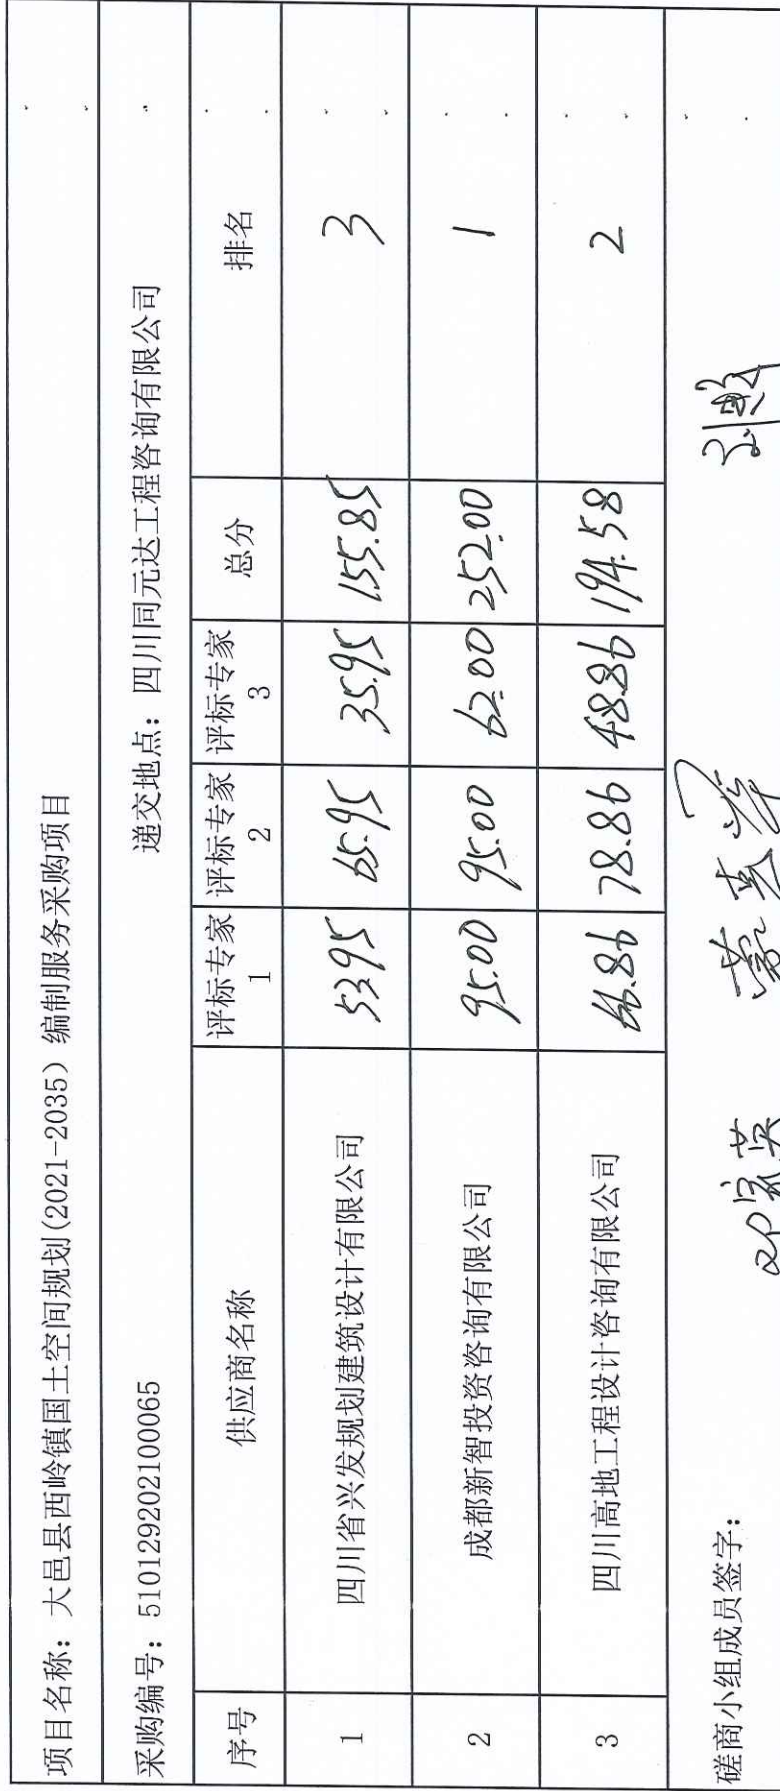 项目名称：大邑县西岭镇国土空间规划(2021-2035)编制服务采购项目
采购编号：510129202100065 递交地点：四川同元达工程咨询有限公司
序号 供应商名称 评标专家1 评标专家2 评标专家3 总分 排名
1 四川省兴发规划建筑设计有限公司 53.95 65.95 35.95 155.85 3
2 成都新智投资咨询有限公司 95.00 95.00 62.00 252.00 1
3 四川高地工程设计咨询有限公司 66.86 78.86 48.86 194.58 2
磋商小组成员签字：